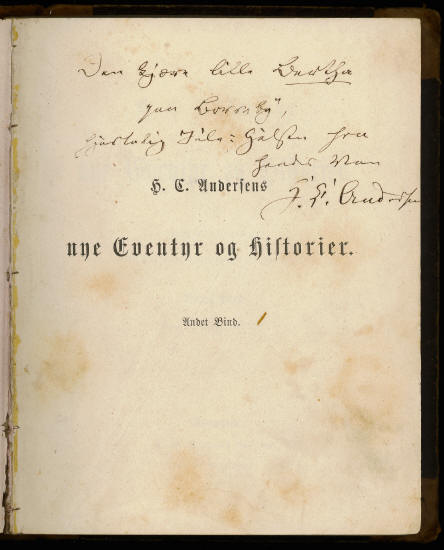 Den kjære lille Bertha
hjertelig Jule-Hilsen fra
hendes Ven
H. C. Andersen
H. C. Andersens
nye Eventyr og Historier.
Andet Bind.